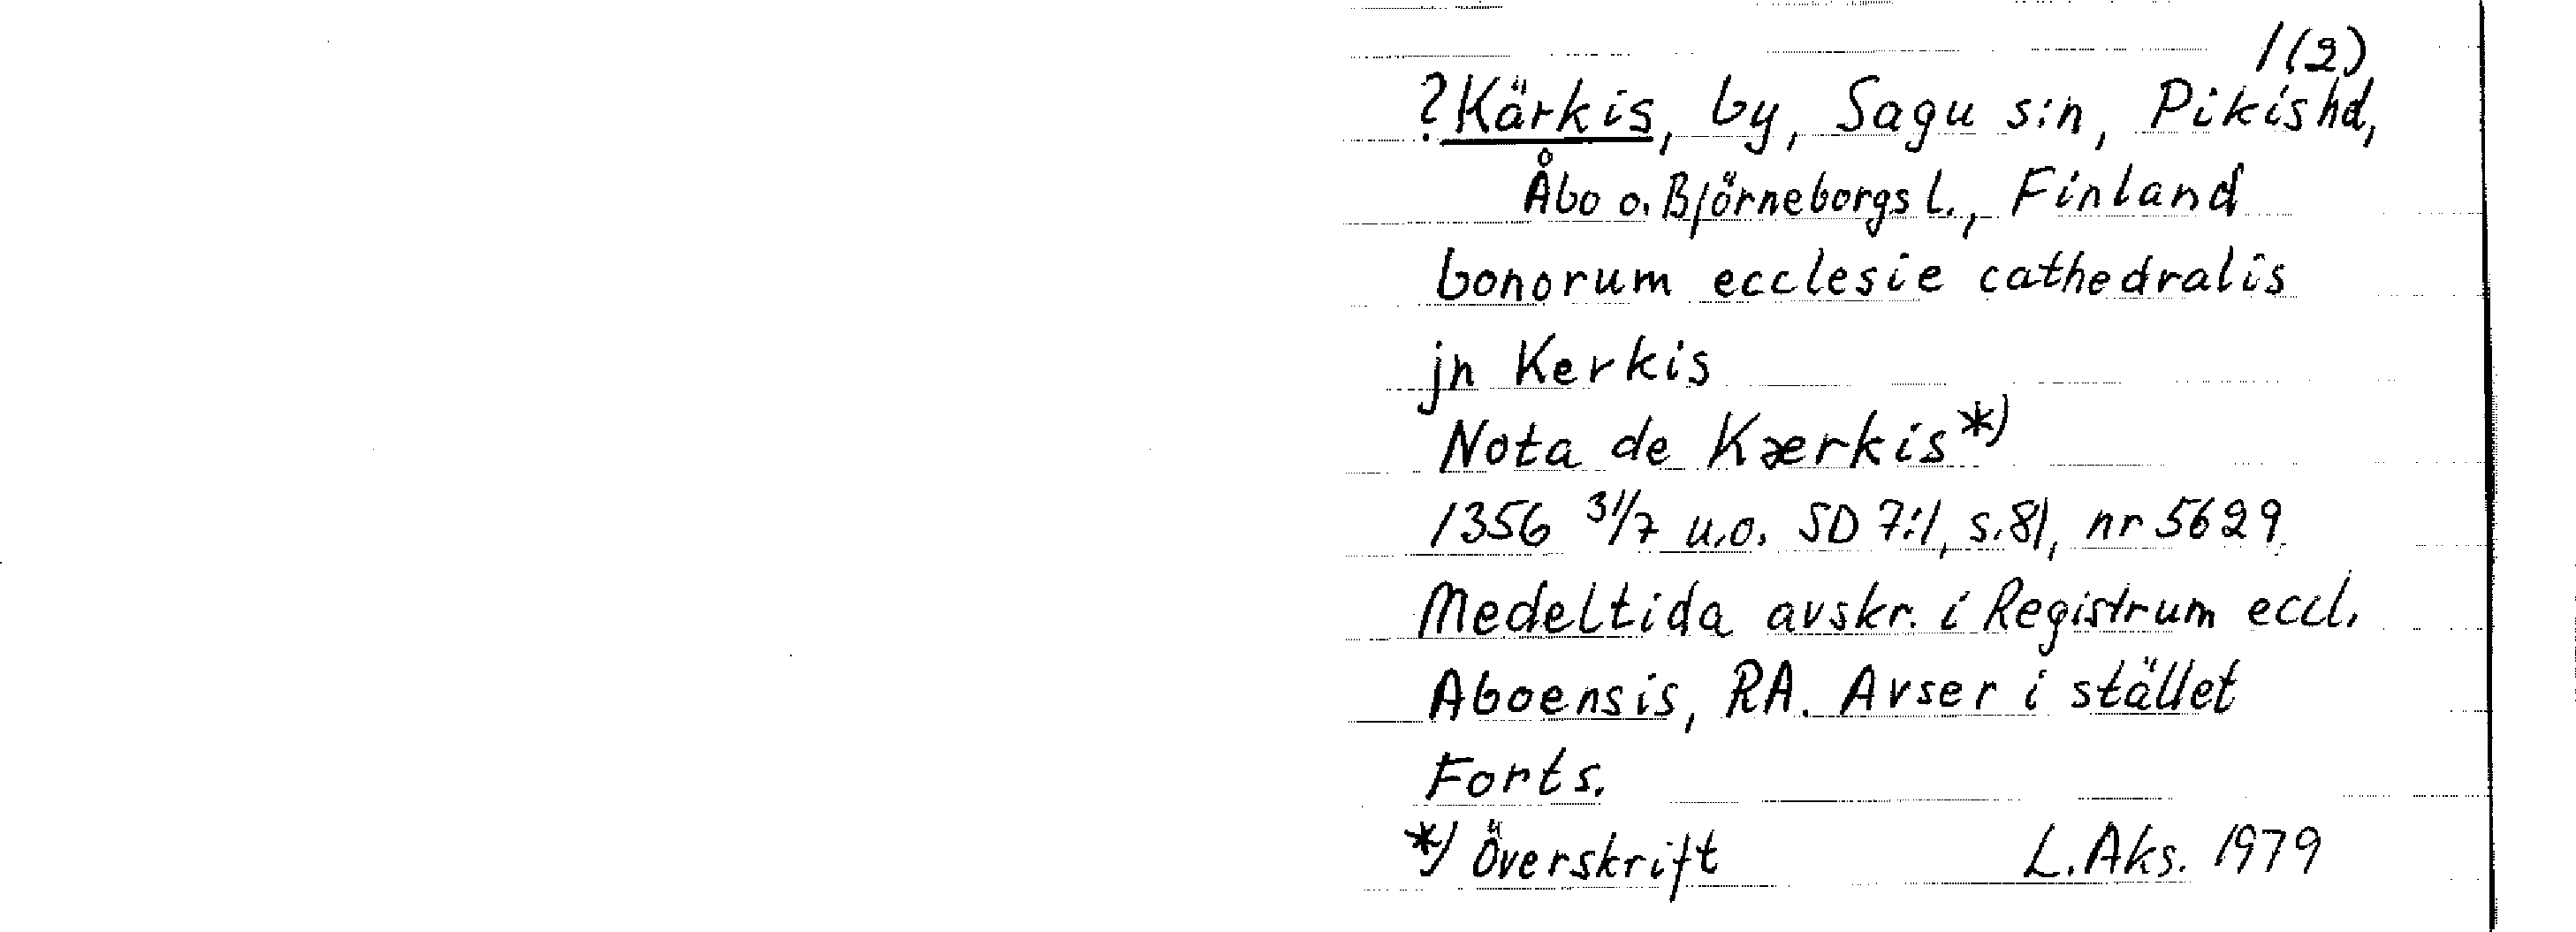 1(2)
?Kärkis, by, Sagu s:n, Pikis hd,
Åbo o. Björneborgs l., Finland
bonorum ecclesie cathedralis
jn Kerkis
Nota de Kærkis*)
1356 31/7 u.o. SD 7:1, s.81, nr 5629
Medeltida avskr. i Registrum eccl.
Aboensis, RA. Avser i stället
Forts.
*) Överskrift L. Aks. 1979